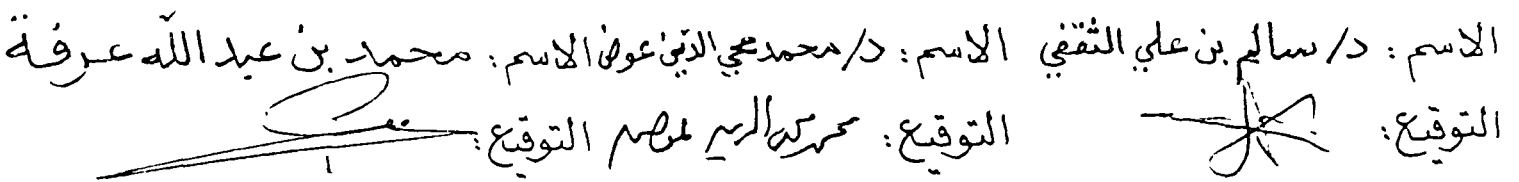 الاسم : د/ سالم بن علي الثقفي الاسم : د/ محمد محي الدين عوض الاسم : محمد بن عبد الله عرفة
التوقيع: التوقيع: التوقيع: